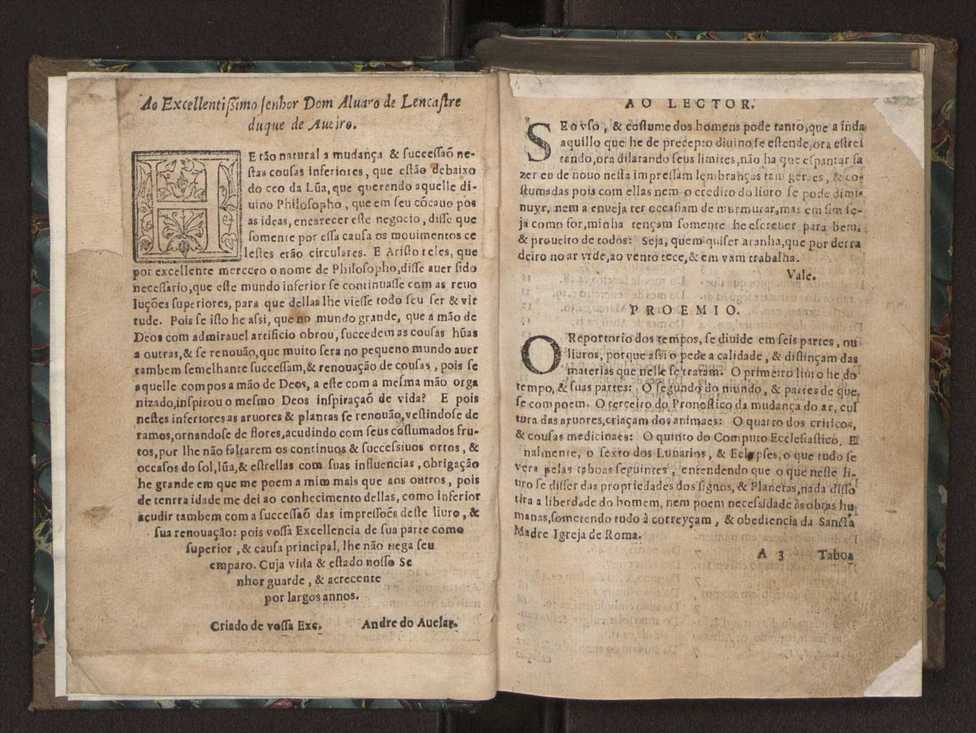 Ao Excellentißimo senhor Dom Aluaro de Lencastre
duque de Aueiro.
HE tão natural a mudança & successaõ ne-
stas cousas inferiores, que estão debaixo
do ceo da Lũa, que querendo aquelle di-
uino Philosopho, que em seu cõcauo pos
as ideas, encarecer este negocio, disse que
somente por essa causa os mouimentos ce
lestes erão circulares. E Aristoteles, que
por excellente mereceo o nome de Philosopho, disse auer sido
necessario, que este mundo inferior se continuasse com as reuo
luções superiores, para que dellas lhe viesse todo seu ser & vir
tude. Pois se isto he assi, que no mundo grande, que a mão de
Deos com admirauel artificio obrou, succedem as cousas hũas
a outras, & se renouão, que muito sera no pequeno mundo auer
tambem semelhante successam, & renouação de cousas, pois se
aquelle compos a mão de Deos, a este com a mesma mão orga
nizado, inspirou o mesmo Deos inspiraçaõ de vida? E pois
nestes inferiores as aruores & plantas se renouão, vestindose de
ramos, ornandose de flores, acudindo com seus costumados fru-
tos, por lhe não faltarem os continuos & successiuos ortos, &
occasos do sol, lũa, & estrellas com suas influencias, obrigação
he grande em que me poem a mim mais que aos outros, pois
de tenra idade me dei ao conhecimento dellas, como inferior
acudir tambem com a successaõ das impressões deste liuro, &
sua renouação: pois vossa Excellencia de sua parte como
superior, & causa principal, lhe não nega seu
emparo. Cuja vida & estado nosso Se
nhor guarde, & acrecente
por largos annos.
Criado de vossa Exc. Andre do Auelar.
AO LECTOR.
SE o vso, & costume dos homens pode tanto, que a inda
aquillo que he de precepto diuino se estende, ora estrei
tando, ora dilatando seus limites, não ha que espantar fa
zer eu de nouo nesta impressam lembranças tam geraes, & cos
tumadas pois com ellas nem o credito do liuro se pode dimi-
nuyr, nem a enueja ter occasiam de murmurar, mas em fim se-
ja como for, minha tençam somente he escreuer para bem,
& proueito de todos: Seja, quem quiser aranha, que por derra
deiro no ar vide, ao vento tece, & em vam trabalha.
Vale.
PROEMIO.
O Reportorio dos tempos, se diuide em seis partes, ou
liuros, porque assi o pede a calidade, & distinçam das
materias que nelle se tratam. O primeiro liuro he do
tempo, & suas partes: O segundo do mundo, & partes de que
se compoem. O terceiro do Pronostico da mudança do ar, cul
tura das aruores, criaçam dos animaes: O quarto dos criticos,
& cousas medicinaes: O quinto do Computo Ecclesiastico. E
nalmente, o sexto dos Lunarios, & Eclypses, o que tudo se
vera pelas taboas seguintes, entendendo que o que neste li-
uro se disser das propriedades dos signos, & Planetas, nada disso
tira a liberdade do homem, nem poem necessidade às obras hu
manas, sometendo tudo à correyçam, & obediencia da Sancta
Madre Igreja de Roma.
A 3 Taboa